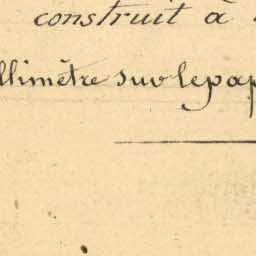 construit à
llimètre sur le pap